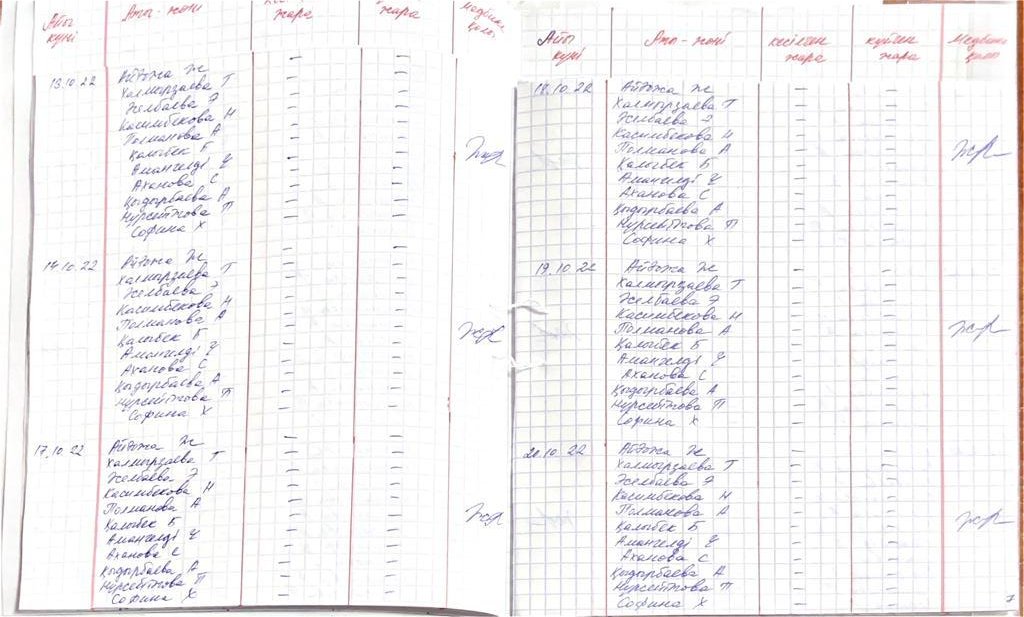 Айы Аты - жөні жара жара
күні
13.10.22 Айдожа Ж — —
Халмырзаева Т — —
Желбаева Э — —
Касимбекова Н — —
Полманова А — —
Қалыбек Б — —
Амангелді Ұ — —
Аханова С — —
Қыдырбаева А — —
Нурсейтова П — —
Софина Х — —
14.10.22 Айдожа Ж — —
Халмырзаева Т — —
Желбаева Э — —
Касимбекова Н — —
Полманова А — —
Қалыбек Б — —
Амангелді Ұ — —
Аханова С — —
Қыдырбаева А — —
Нурсейтова П — —
Софина Х — —
17.10.22 Айдожа Ж — —
Халмырзаева Т — —
Желбаева Э — —
Касимбекова Н — —
Полманова А — —
Қалыбек Б — —
Амангелді Ұ — —
Аханова С — —
Қыдырбаева А — —
Нурсейтова П — —
Софина Х — —
Айы Аты - жөні кесілген күйген
күні жара жара қолы
18.10.22 Айдожа Ж — —
Халмырзаева Т — —
Желбаева Э — —
Касимбекова Н — —
Полманова А — —
Қалыбек Б — —
Амангелді Ұ — —
Аханова С — —
Қыдырбаева А — —
Нурсейтова П — —
Софина Х — —
19.10.22 Айдожа Ж — —
Халмырзаева Т — —
Желбаева Э — —
Касимбекова Н — —
Полманова А — —
Қалыбек Б — —
Амангелді Ұ — —
Аханова С — —
Қыдырбаева А — —
Нурсейтова П — —
Софина Х — —
20.10.22 Айдожа Ж — —
Халмырзаева Т — —
Желбаева Э — —
Касимбекова Н — —
Полманова А — —
Қалыбек Б — —
Амангелді Ұ — —
Аханова С — —
Қыдырбаева А — —
Нурсейтова П — —
Софина Х — —
7